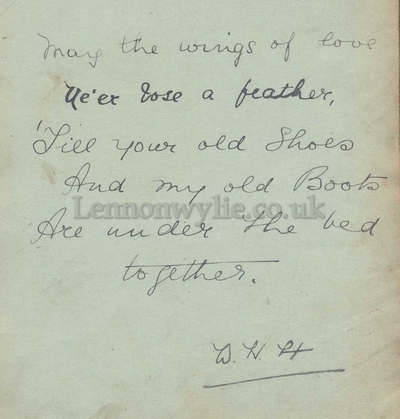 May the wings of love
Ne'er lose a feather,
'Till your old Shoes
And my old Boots
Lennonwylie.co.uk
Are under the bed
together.
D. H. H